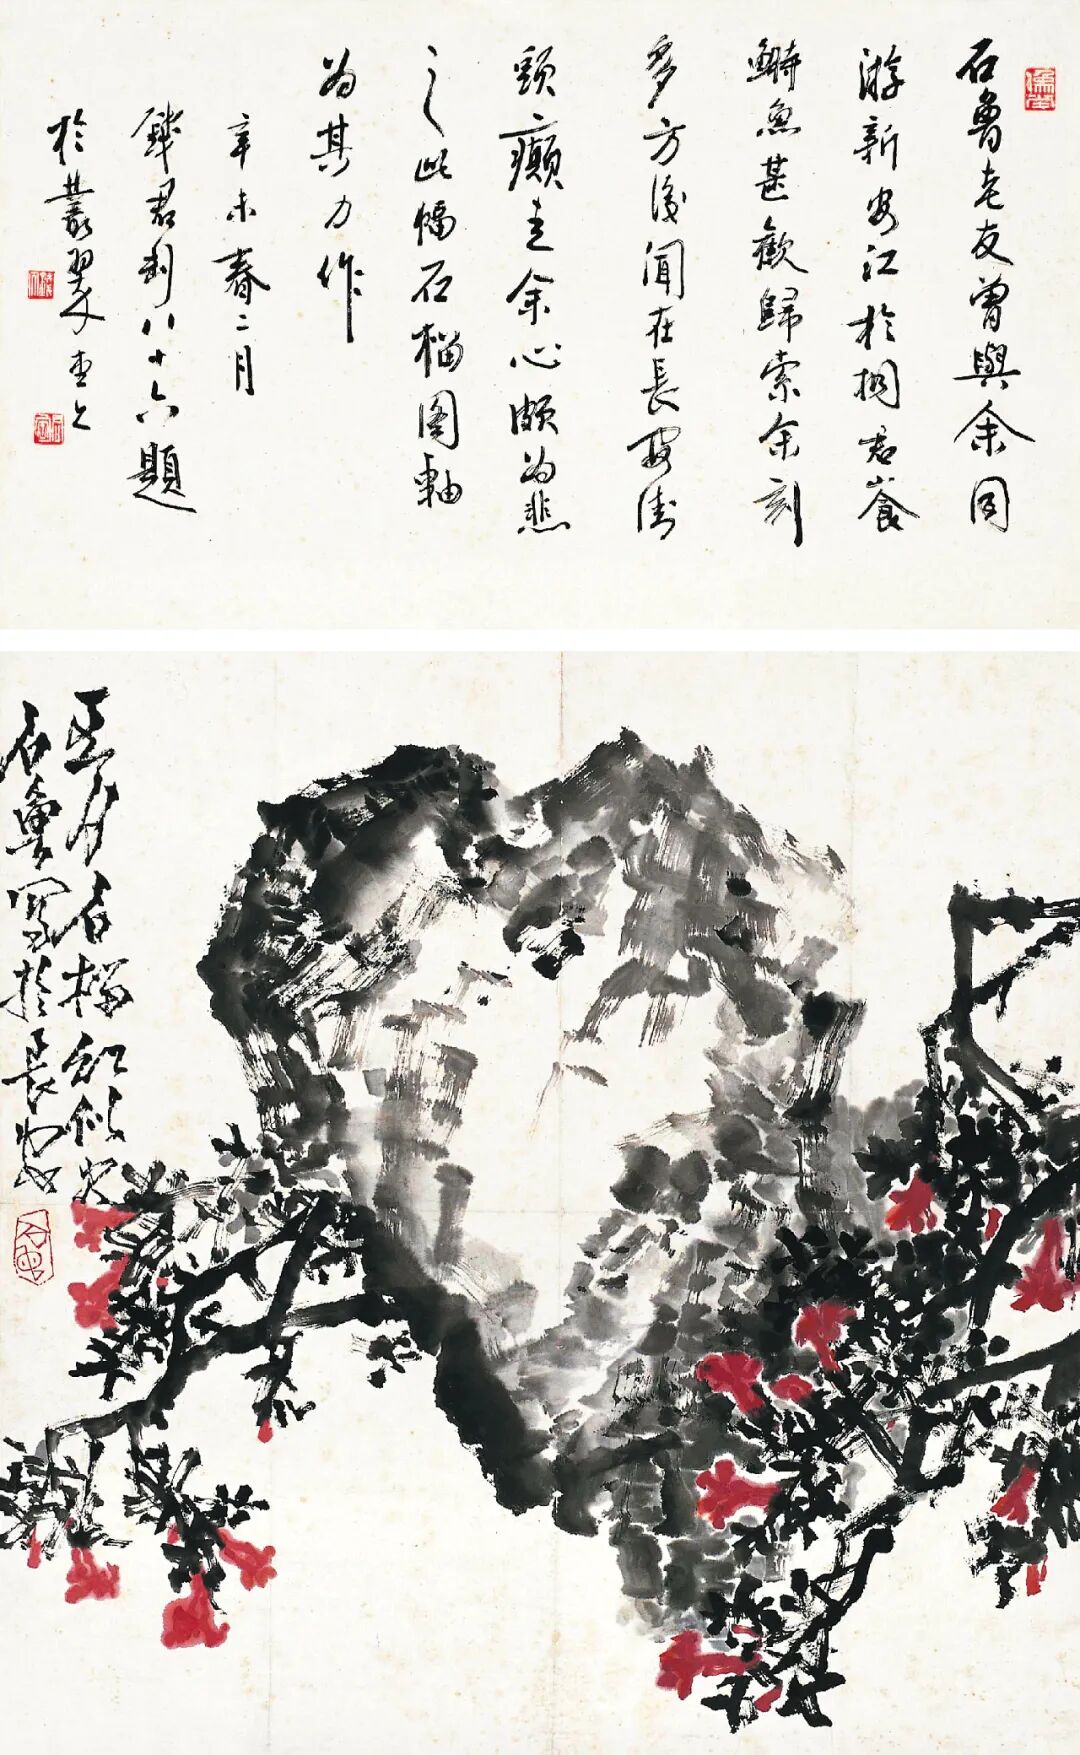 石魯老友曾與余同
游新安江於桐君山食
鰣魚甚歡歸索余刻
多方後聞在長安
頭癲走余心頗為悲
之此幅石榴圖軸
為其力作
辛未春二月
錢君匋八十六題
於叢翠堂
五月石榴紅似火
石魯寫於長安
石魯